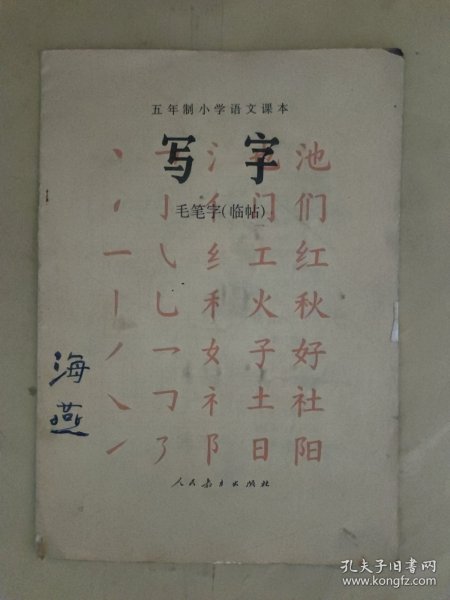 五年制小学语文课本
写字
毛笔字(临帖)
丶 氵 也 池
丿 亅 亻 门 们
一 乀 纟 工 红
丨 乚 禾 火 秋
丿 乛 女 子 好
㇏ 𠃌 礻 土 社
㇀ 阝 日 阳
海燕
人民教育出版社
孔夫子旧书网
www.kongfz.com